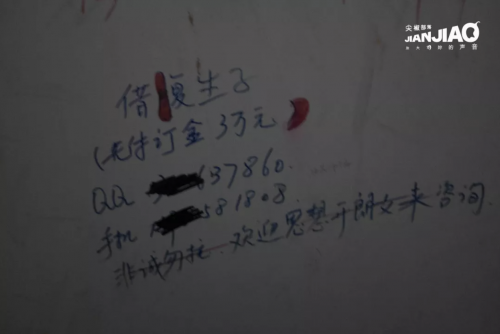 尖椒部落
JIANJIAO
放大你听的声音
借腹生子
(先付订金3万元)
QQ 637860.
手机 581808
非诚勿扰.欢迎思想开朗女来咨询.